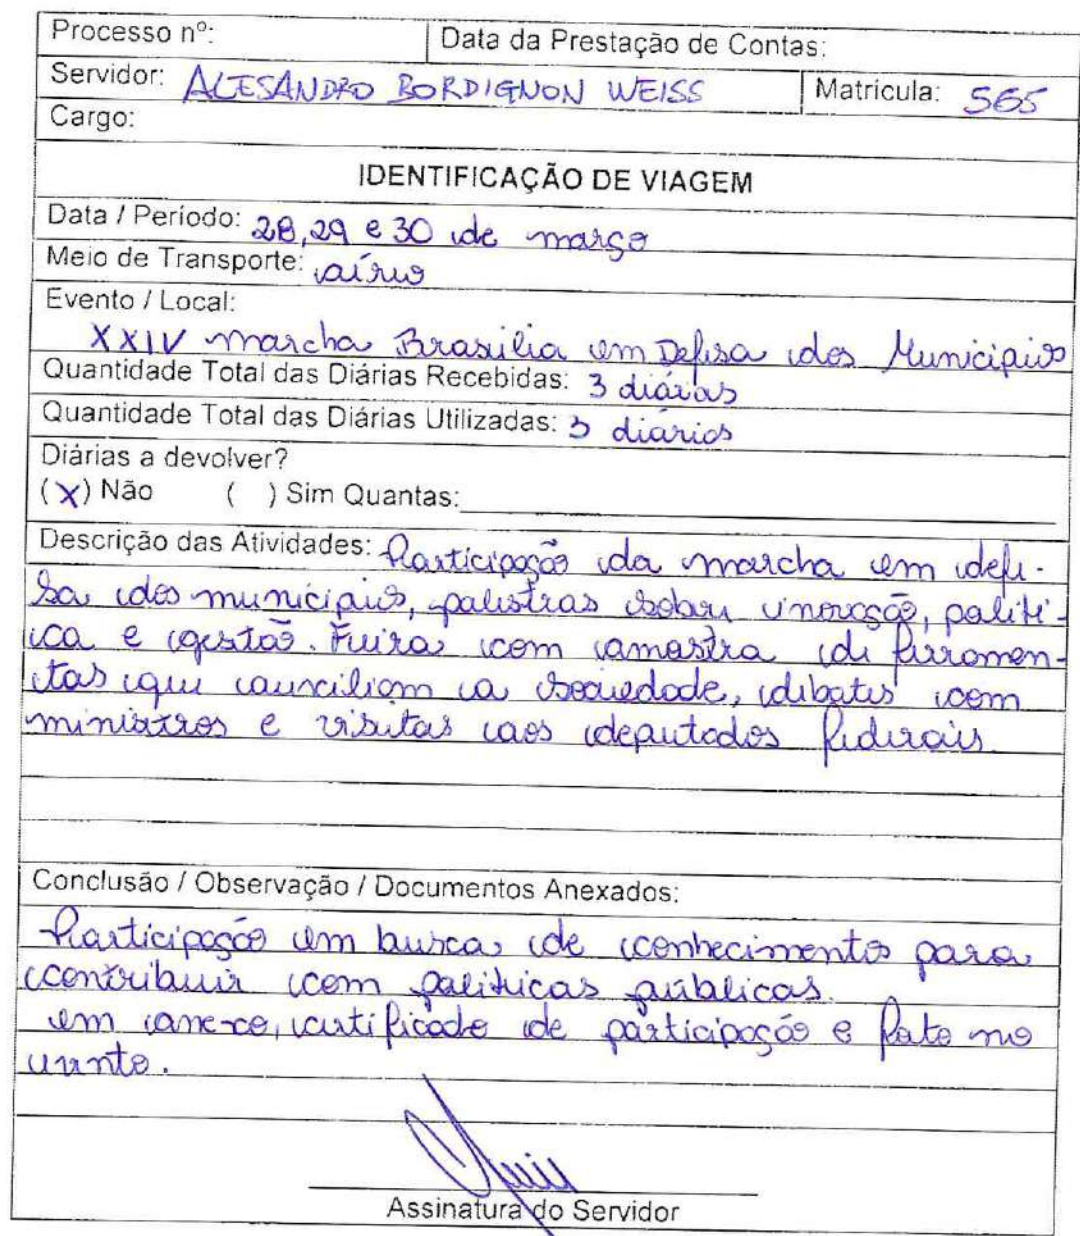 Processo nº: Data da Prestação de Contas:
Servidor: ALESANDRO BORDIGNON WEISS Matricula: 565
Cargo:
IDENTIFICAÇÃO DE VIAGEM
Data / Período: 28, 29 e 30 de março
Meio de Transporte: aírio
Evento / Local:
XXIV marcha Brasilia em Defesa dos Municipios
Quantidade Total das Diárias Recebidas: 3 diárias
Quantidade Total das Diárias Utilizadas: 3 diárias
Diárias a devolver?
(X) Não ( ) Sim Quantas:
Descrição das Atividades: Participação da marcha em defe-
sa dos municipios, palestras sobre inovação, politi-
ca e gestão. Feira com amostra de ferramen-
tas que auxiliam a sociedade, debates com
ministros e visitas aos deputados federais
Conclusão / Observação / Documentos Anexados:
Participação em busca de conhecimentos para
contribuir com politicas públicas.
em anexo, certificado de participação e foto no
evento.
Assinatura do Servidor